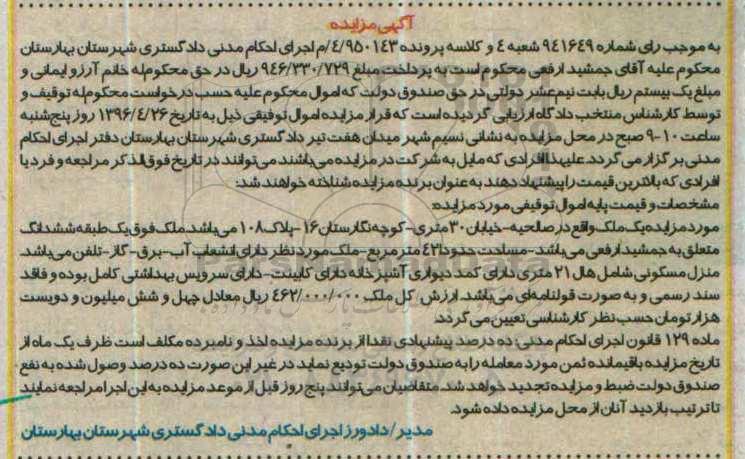 آگهی مزایده
به موجب رای شماره ۹۴۱۶۴۹ شعبه ٤ و کلاسه پرونده ۹۵۰۱۴۳/٤/م اجرای احکام مدنی دادگستری شهرستان بهارستان
محکوم علیه آقای جمشید ارفعی محکوم است به پرداخت مبلغ ۹٤۶/۳۳۰/۷۲۹ ریال در حق محکوم‌له خانم آرزو ایمانی و
مبلغ یک بیستم ریال بابت نیم عشر دولتی در حق صندوق دولت که اموال محکوم علیه حسب درخواست محکوم‌له توقیف و
توسط کارشناس منتخب دادگاه ارزیابی گردیده است که قرار مزایده اموال توقیفی ذیل به تاریخ ۱۳۹۶/٤/۲۶ روز پنج‌شنبه
ساعت ۱۰-۹ صبح در محل مزایده به نشانی نسیم شهر میدان هفت تیر دادگستری شهرستان بهارستان دفتر اجرای احکام
مدنی برگزار می گردد. علیهذا افرادی که مایل به شرکت در مزایده می‌باشند می‌توانند در تاریخ فوق‌الذکر مراجعه و فرد یا
افرادی که بالاترین قیمت را پیشنهاد دهند به عنوان برنده مزایده شناخته خواهند شد:
مشخصات و قیمت پایه اموال توقیفی مورد مزایده:
مورد مزایده یک ملک واقع در صالحیه-خیابان ۳۰ متری-کوچه نگارستان ۱۶-پلاک ۱۰۸ می‌باشد.ملک فوق یک طبقه ششدانگ
متعلق به جمشید ارفعی می‌باشد-مساحت حدودا ٤۲ متر مربع-ملک مورد نظر دارای انشعاب آب-برق-گاز-تلفن می‌باشد.
منزل مسکونی شامل هال ۲۱ متری دارای کمد دیواری آشپزخانه دارای کابینت-دارای سرویس بهداشتی کامل بوده و فاقد
سند رسمی و به صورت قولنامه‌ای می‌باشد. ارزش کل ملک ٤۶۲/۰۰۰/۰۰۰ ریال معادل چهل و شش میلیون و دویست
هزار تومان حسب نظر کارشناسی تعیین می گردد.
ماده ۱۲۹ قانون اجرای احکام مدنی: ده درصد پیشنهادی نقدا از برنده مزایده اخذ و نامبرده مکلف است ظرف یک ماه از
تاریخ مزایده باقیمانده ثمن مورد معامله را به صندوق دولت تودیع نماید در غیر این صورت ده درصد وصول شده به نفع
صندوق دولت ضبط و مزایده تجدید خواهد شد. متقاضیان می‌توانند پنج روز قبل از موعد مزایده به این اجرا مراجعه نمایند
تا ترتیب بازدید آنان از محل مزایده داده شود.
مدیر/دادورز اجرای احکام مدنی دادگستری شهرستان بهارستان